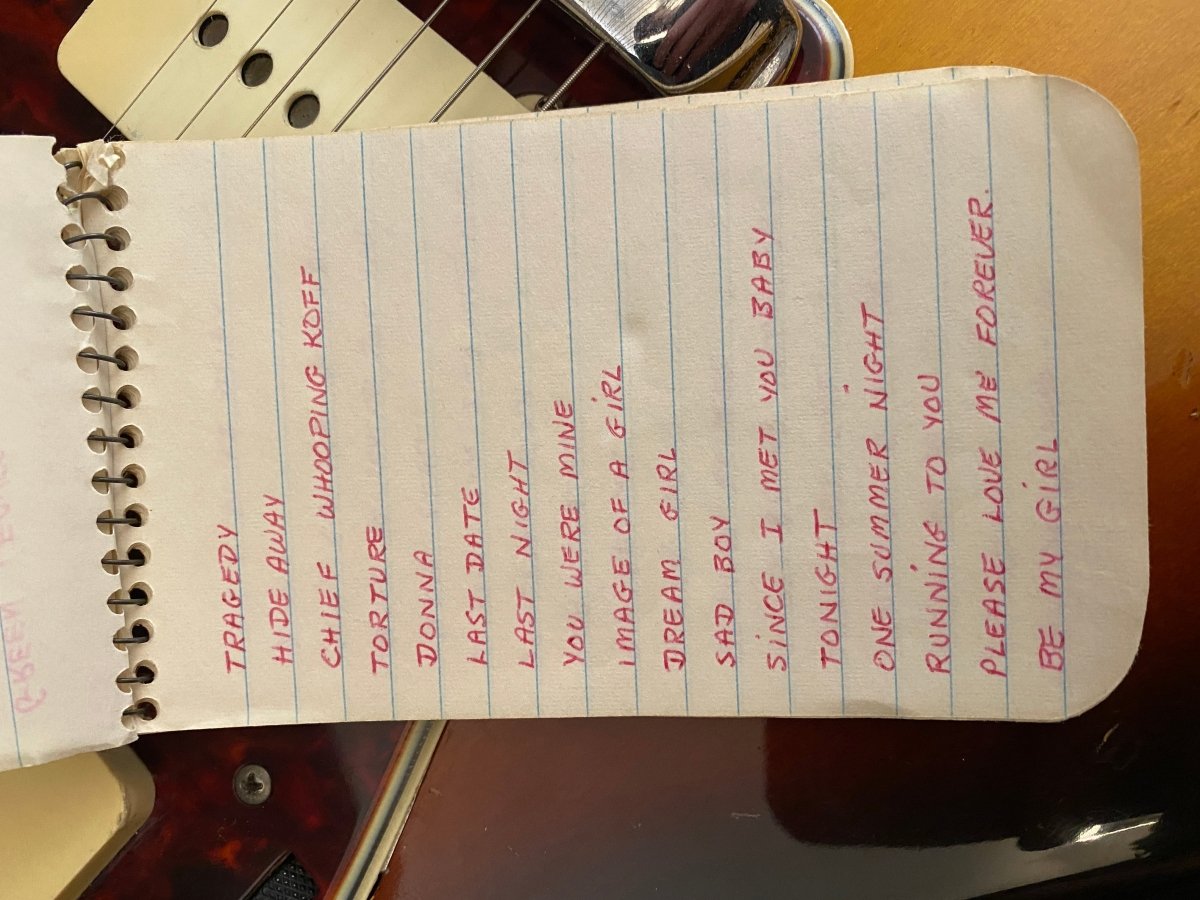 TRAGEDY
HIDE AWAY
CHIEF WHOOPING KOFF
TORTURE
DONNA
LAST DATE
LAST NIGHT
YOU WERE MINE
IMAGE OF A GIRL
DREAM GIRL
SAD BOY
SINCE I MET YOU BABY
TONIGHT
ONE SUMMER NIGHT
RUNNING TO YOU
PLEASE LOVE ME FOREVER.
BE MY GIRL